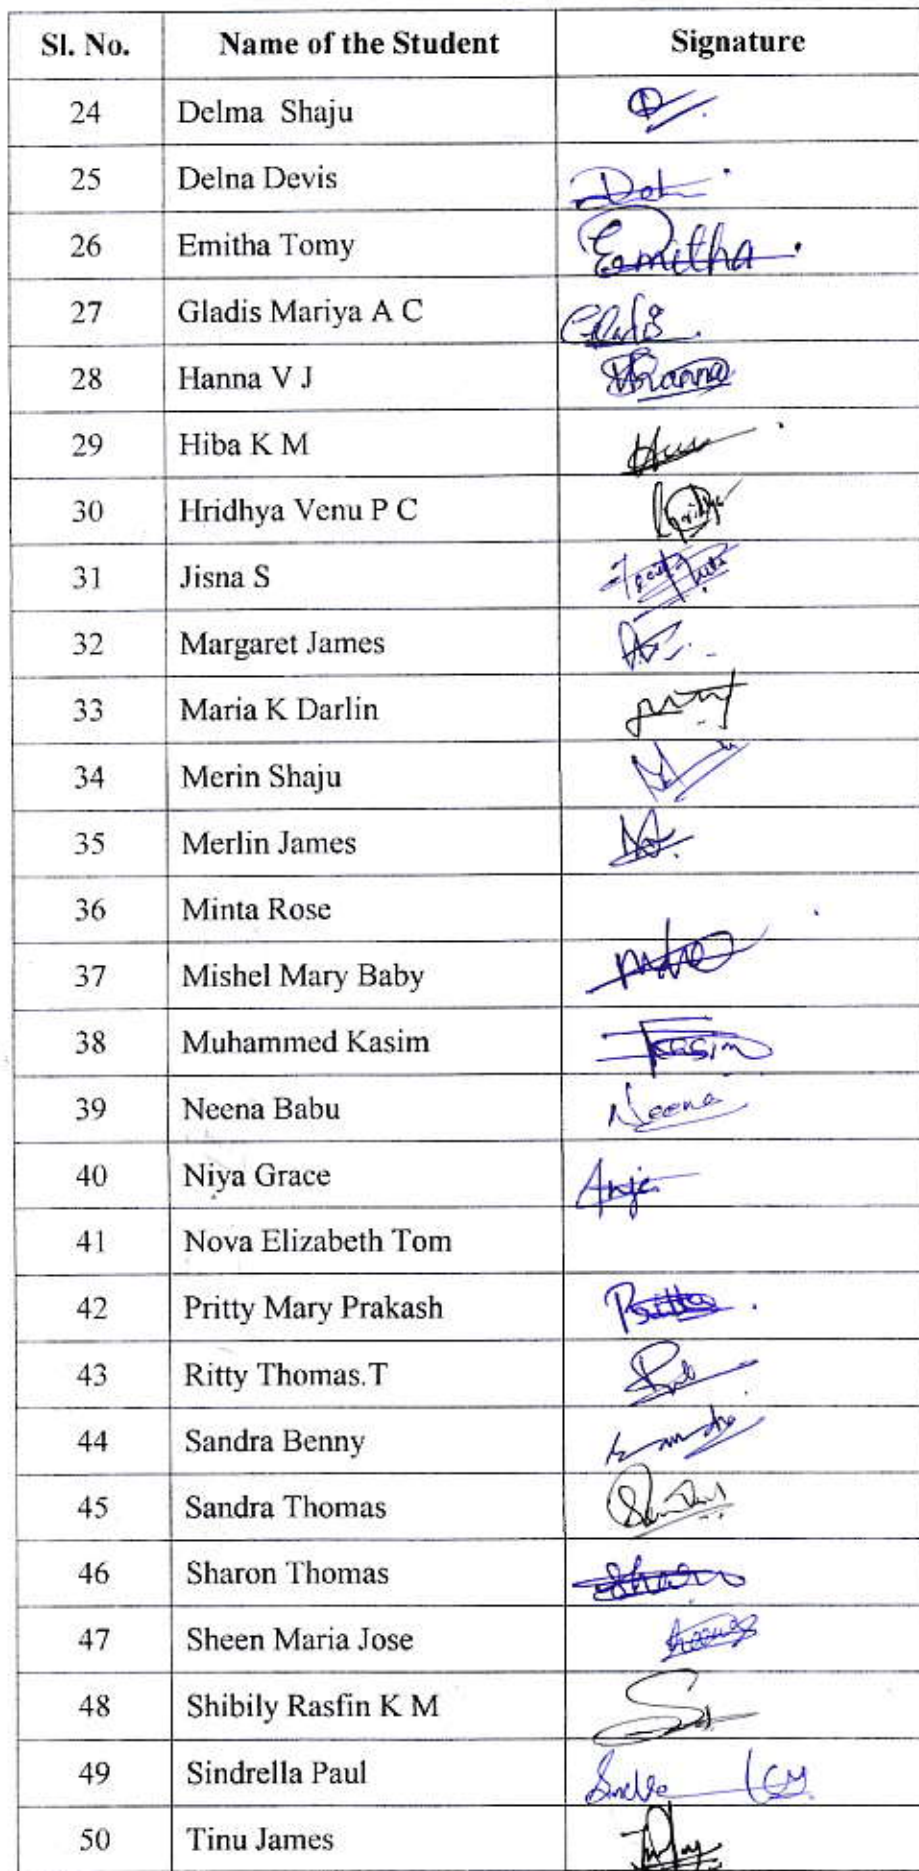 Sl. No. Name of the Student Signature
24 Delma Shaju
25 Delna Devis
26 Emitha Tomy Emitha
27 Gladis Mariya A C Gladis
28 Hanna V J Hanna
29 Hiba K M
30 Hridhya Venu P C
31 Jisna S
32 Margaret James
33 Maria K Darlin
34 Merin Shaju
35 Merlin James
36 Minta Rose
37 Mishel Mary Baby
38 Muhammed Kasim Kasim
39 Neena Babu Neena
40 Niya Grace
41 Nova Elizabeth Tom
42 Pritty Mary Prakash
43 Ritty Thomas.T
44 Sandra Benny
45 Sandra Thomas
46 Sharon Thomas
47 Sheen Maria Jose
48 Shibily Rasfin K M
49 Sindrella Paul
50 Tinu James